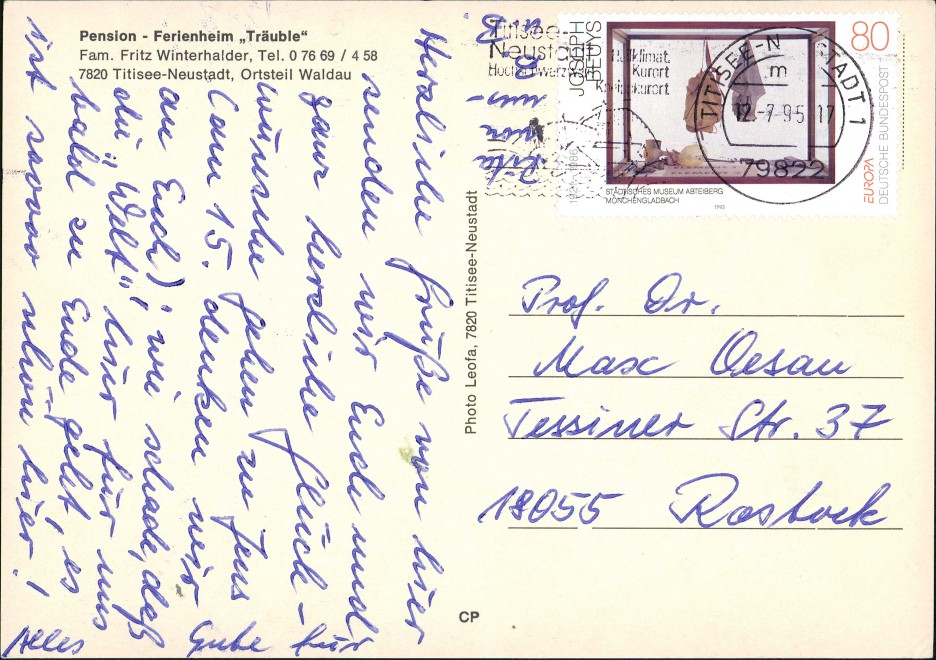 Pension - Ferienheim „Träuble“
Fam. Fritz Winterhalder, Tel. 0 76 69 / 4 58
7820 Titisee-Neustadt, Ortsteil Waldau
Herzliche Grüße von hier
senden wir Euch und
ganz herzliche Glück-
wünsche gehen zu Jens
(am 15. denken wir
an Euch) wie schade, daß
die "Welt" hier für uns
bald zu Ende geht, es
ist soooo schön hier!
Alles Gute für
uns-
von
Photo Leofa, 7820 Titisee-Neustadt
CP
Titisee-
Neustadt
Hochschwarzwald
Heilklimat.
Kurort
Kneippkurort
JOSEPH
BEUYS
80
DEUTSCHE BUNDESPOST
EUROPA
STÄDTISCHES MUSEUM ABTEIBERG
MÖNCHENGLADBACH
1993
TITISEE-NEUSTADT 1
m
12.-7.95 17
79822
Prof. Dr.
Max Oesau
Tessiner Str. 37
18055 Rostock